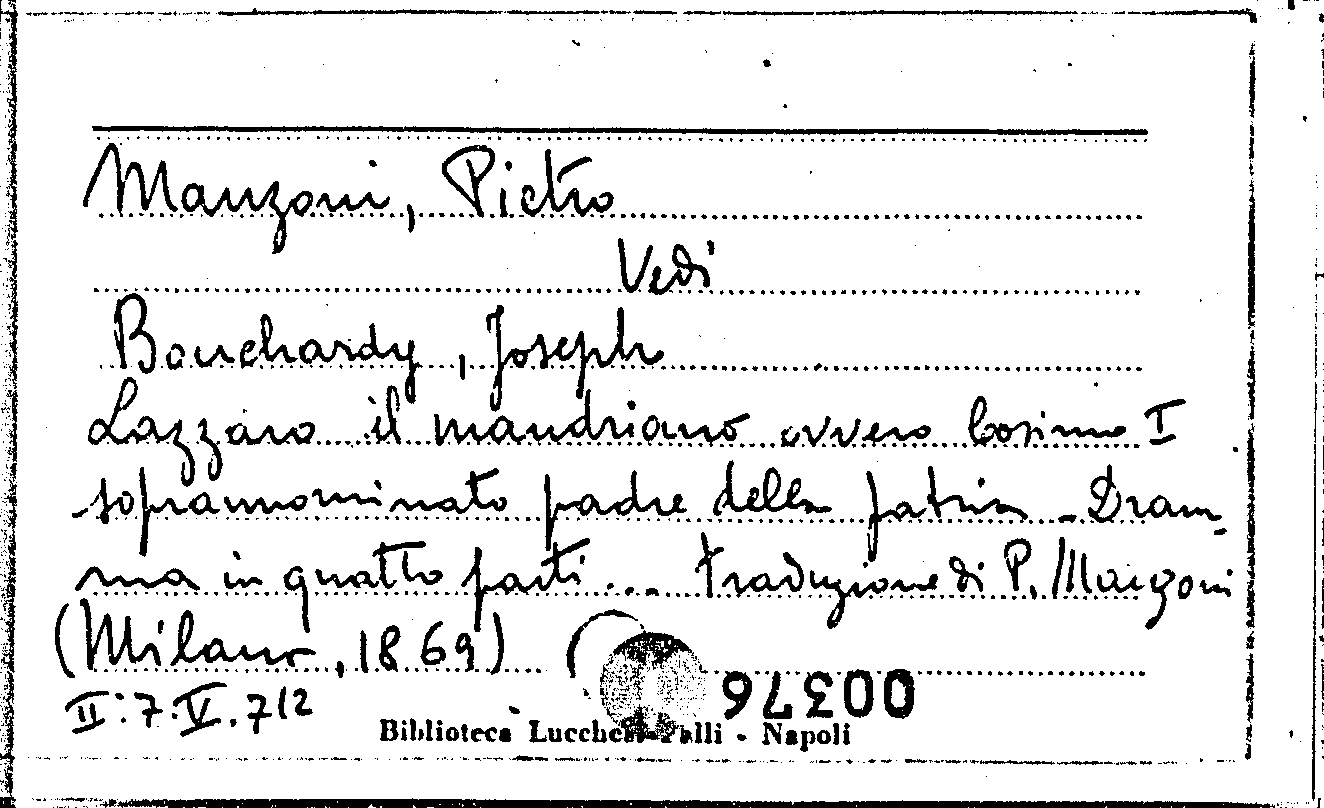 Manzoni, Pietro
Vedi
Bouchardy, Joseph
Lazzaro il mandriano ovvero Cosimo I
soprannominato padre della patria - Dram-
ma in quattro parti... traduzione di P. Manzoni
(Milano, 1869)
00376
II. 7. V. 7 12
Biblioteca Lucchesi-Palli - Napoli